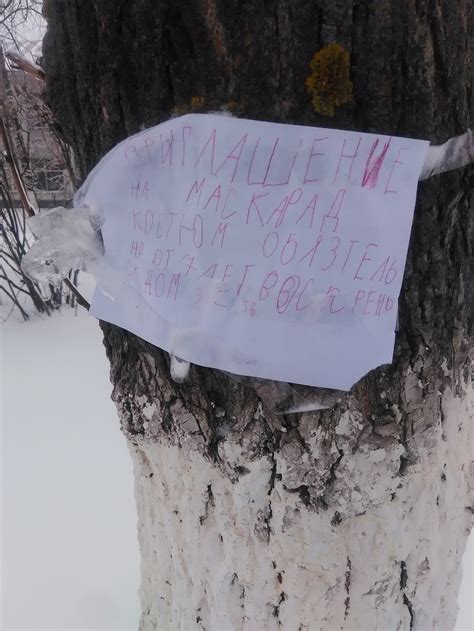 ПРИГЛАШЕНИЕ
НА МАСКАРАД
КОСТЮМ ОБЯЗТЕЛЬ
НО ОТ 7 ЛЕТ ВОСКРЕНЬ
ДОМ 56